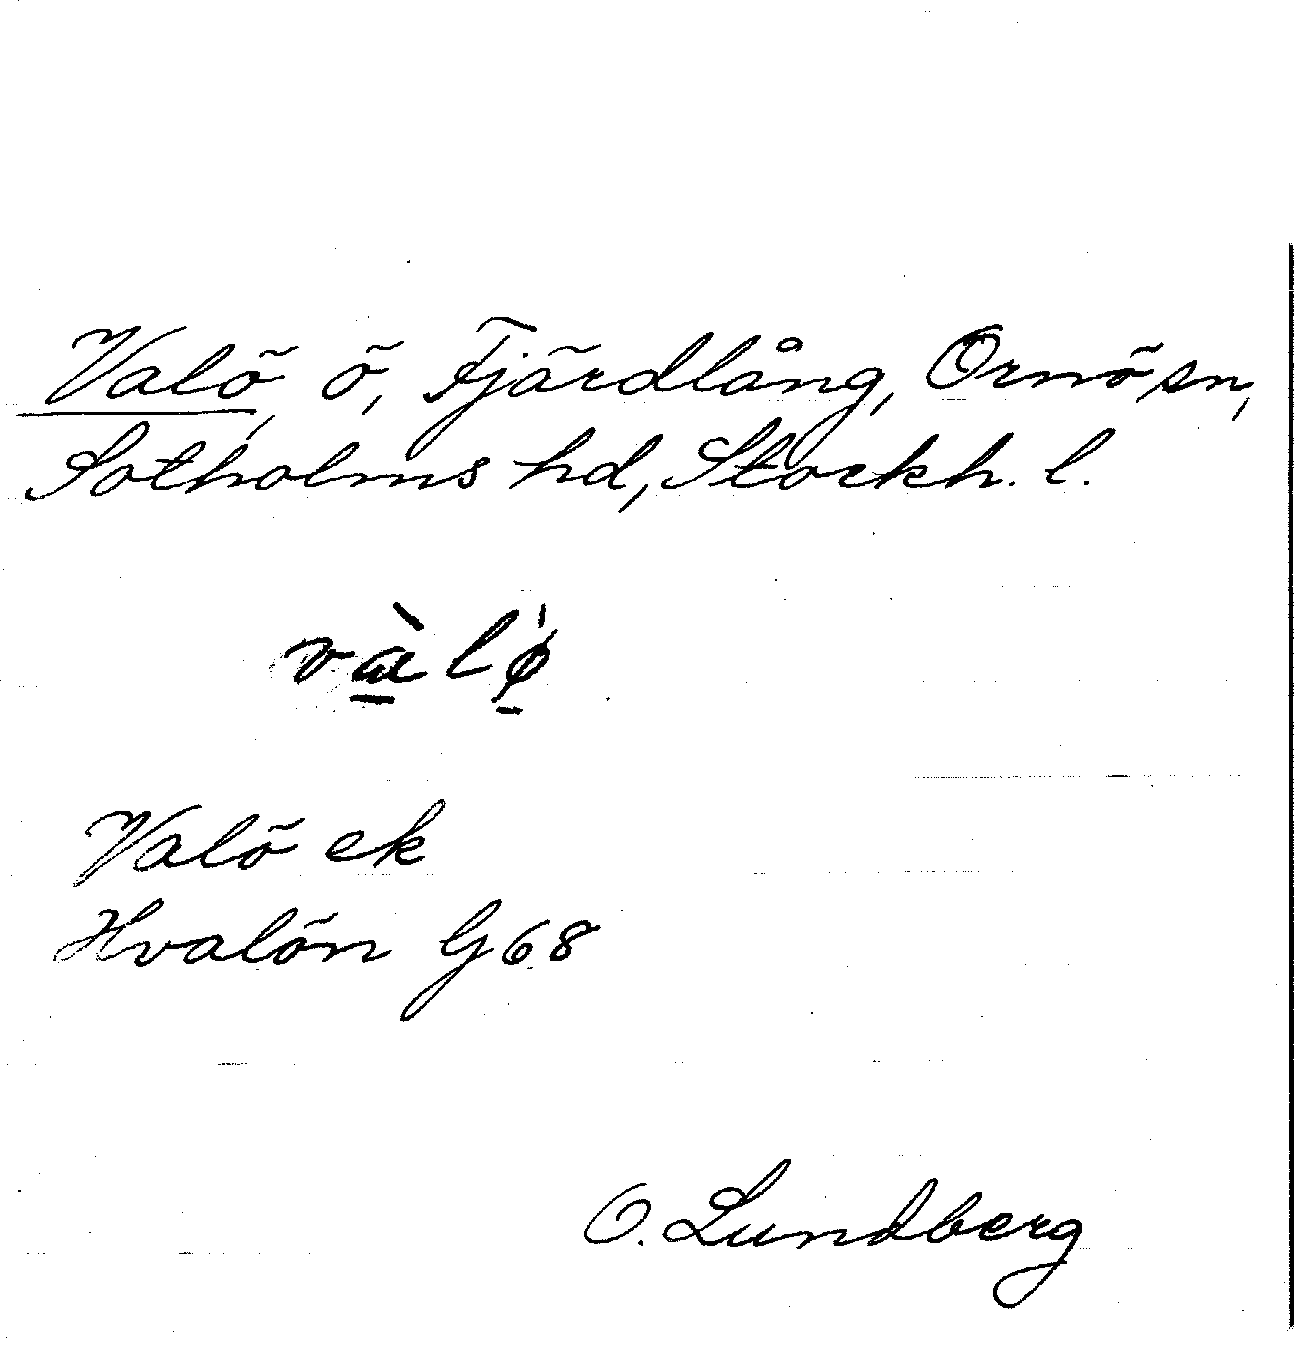 Valö, ö, Fjärdlång, Ornö sn,
Sotholms hd, Stockh. l.
Valö ek
Hvalön G68
O. Lundberg